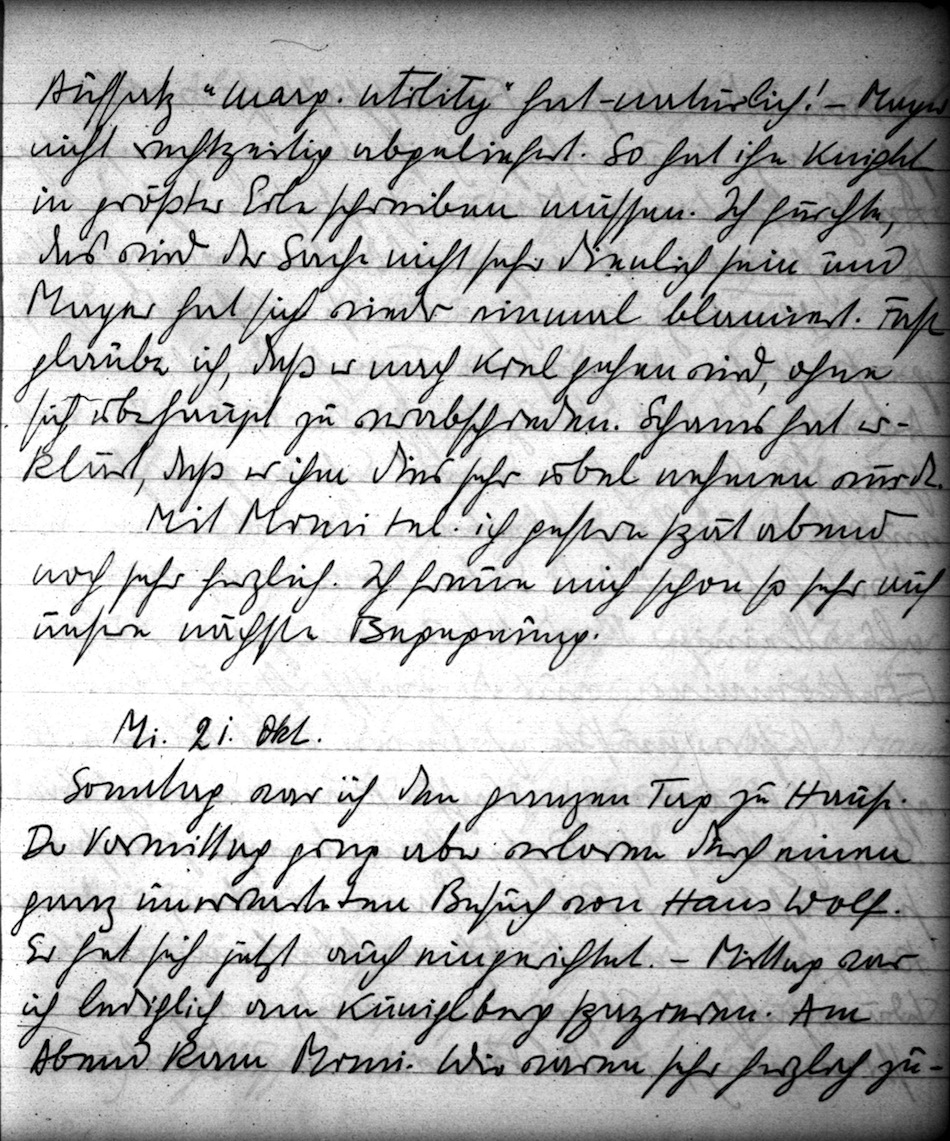 Aufsatz "marg. utility" hat – natürlich! – Mayer
nicht rechtzeitig abgeliefert. So hat ihn Knight
in größter Eile schreiben müssen. Ich fürchte,
das wird der Sache nicht sehr dienlich sein und
Mayer hat sich wieder einmal blamiert. Fast
glaube ich, daß er nach Kiel gehen wird, ohne
sich überhaupt zu verabschieden. Schams hat er-
klärt, daß er ihm dies sehr übel nehmen würde.
Mit Mimi tel. ich gestern spät abend
noch sehr herzlich. Ich freue mich schon so sehr auf
unsere nächste Begegnung.
Mi. 21. Okt.
Sonntag war ich den ganzen Tag zu Hause.
Der Vormittag ging aber verloren durch einen
ganz unerwarteten Besuch von Hans Wolf.
Er hat sich jetzt auch eingerichtet. – Mittag war
ich lediglich am Küniglberg spazieren. Am
Abend kam Mimi. Wir waren sehr herzlich zu-